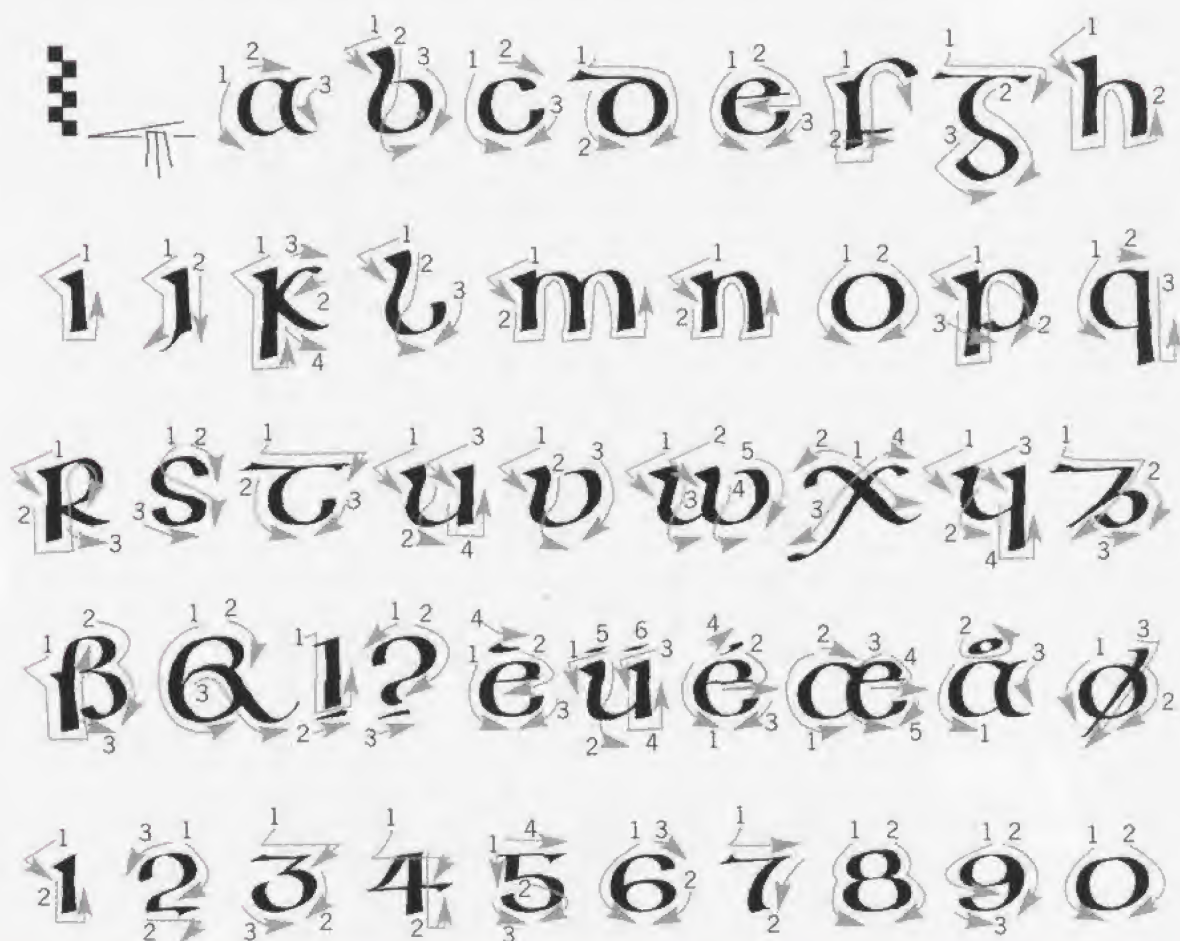 a b c d e f g h
i j k l m n o p q
r s t u v w x y z
ß & ! ? è ü é æ å ø
1 2 3 4 5 6 7 8 9 0